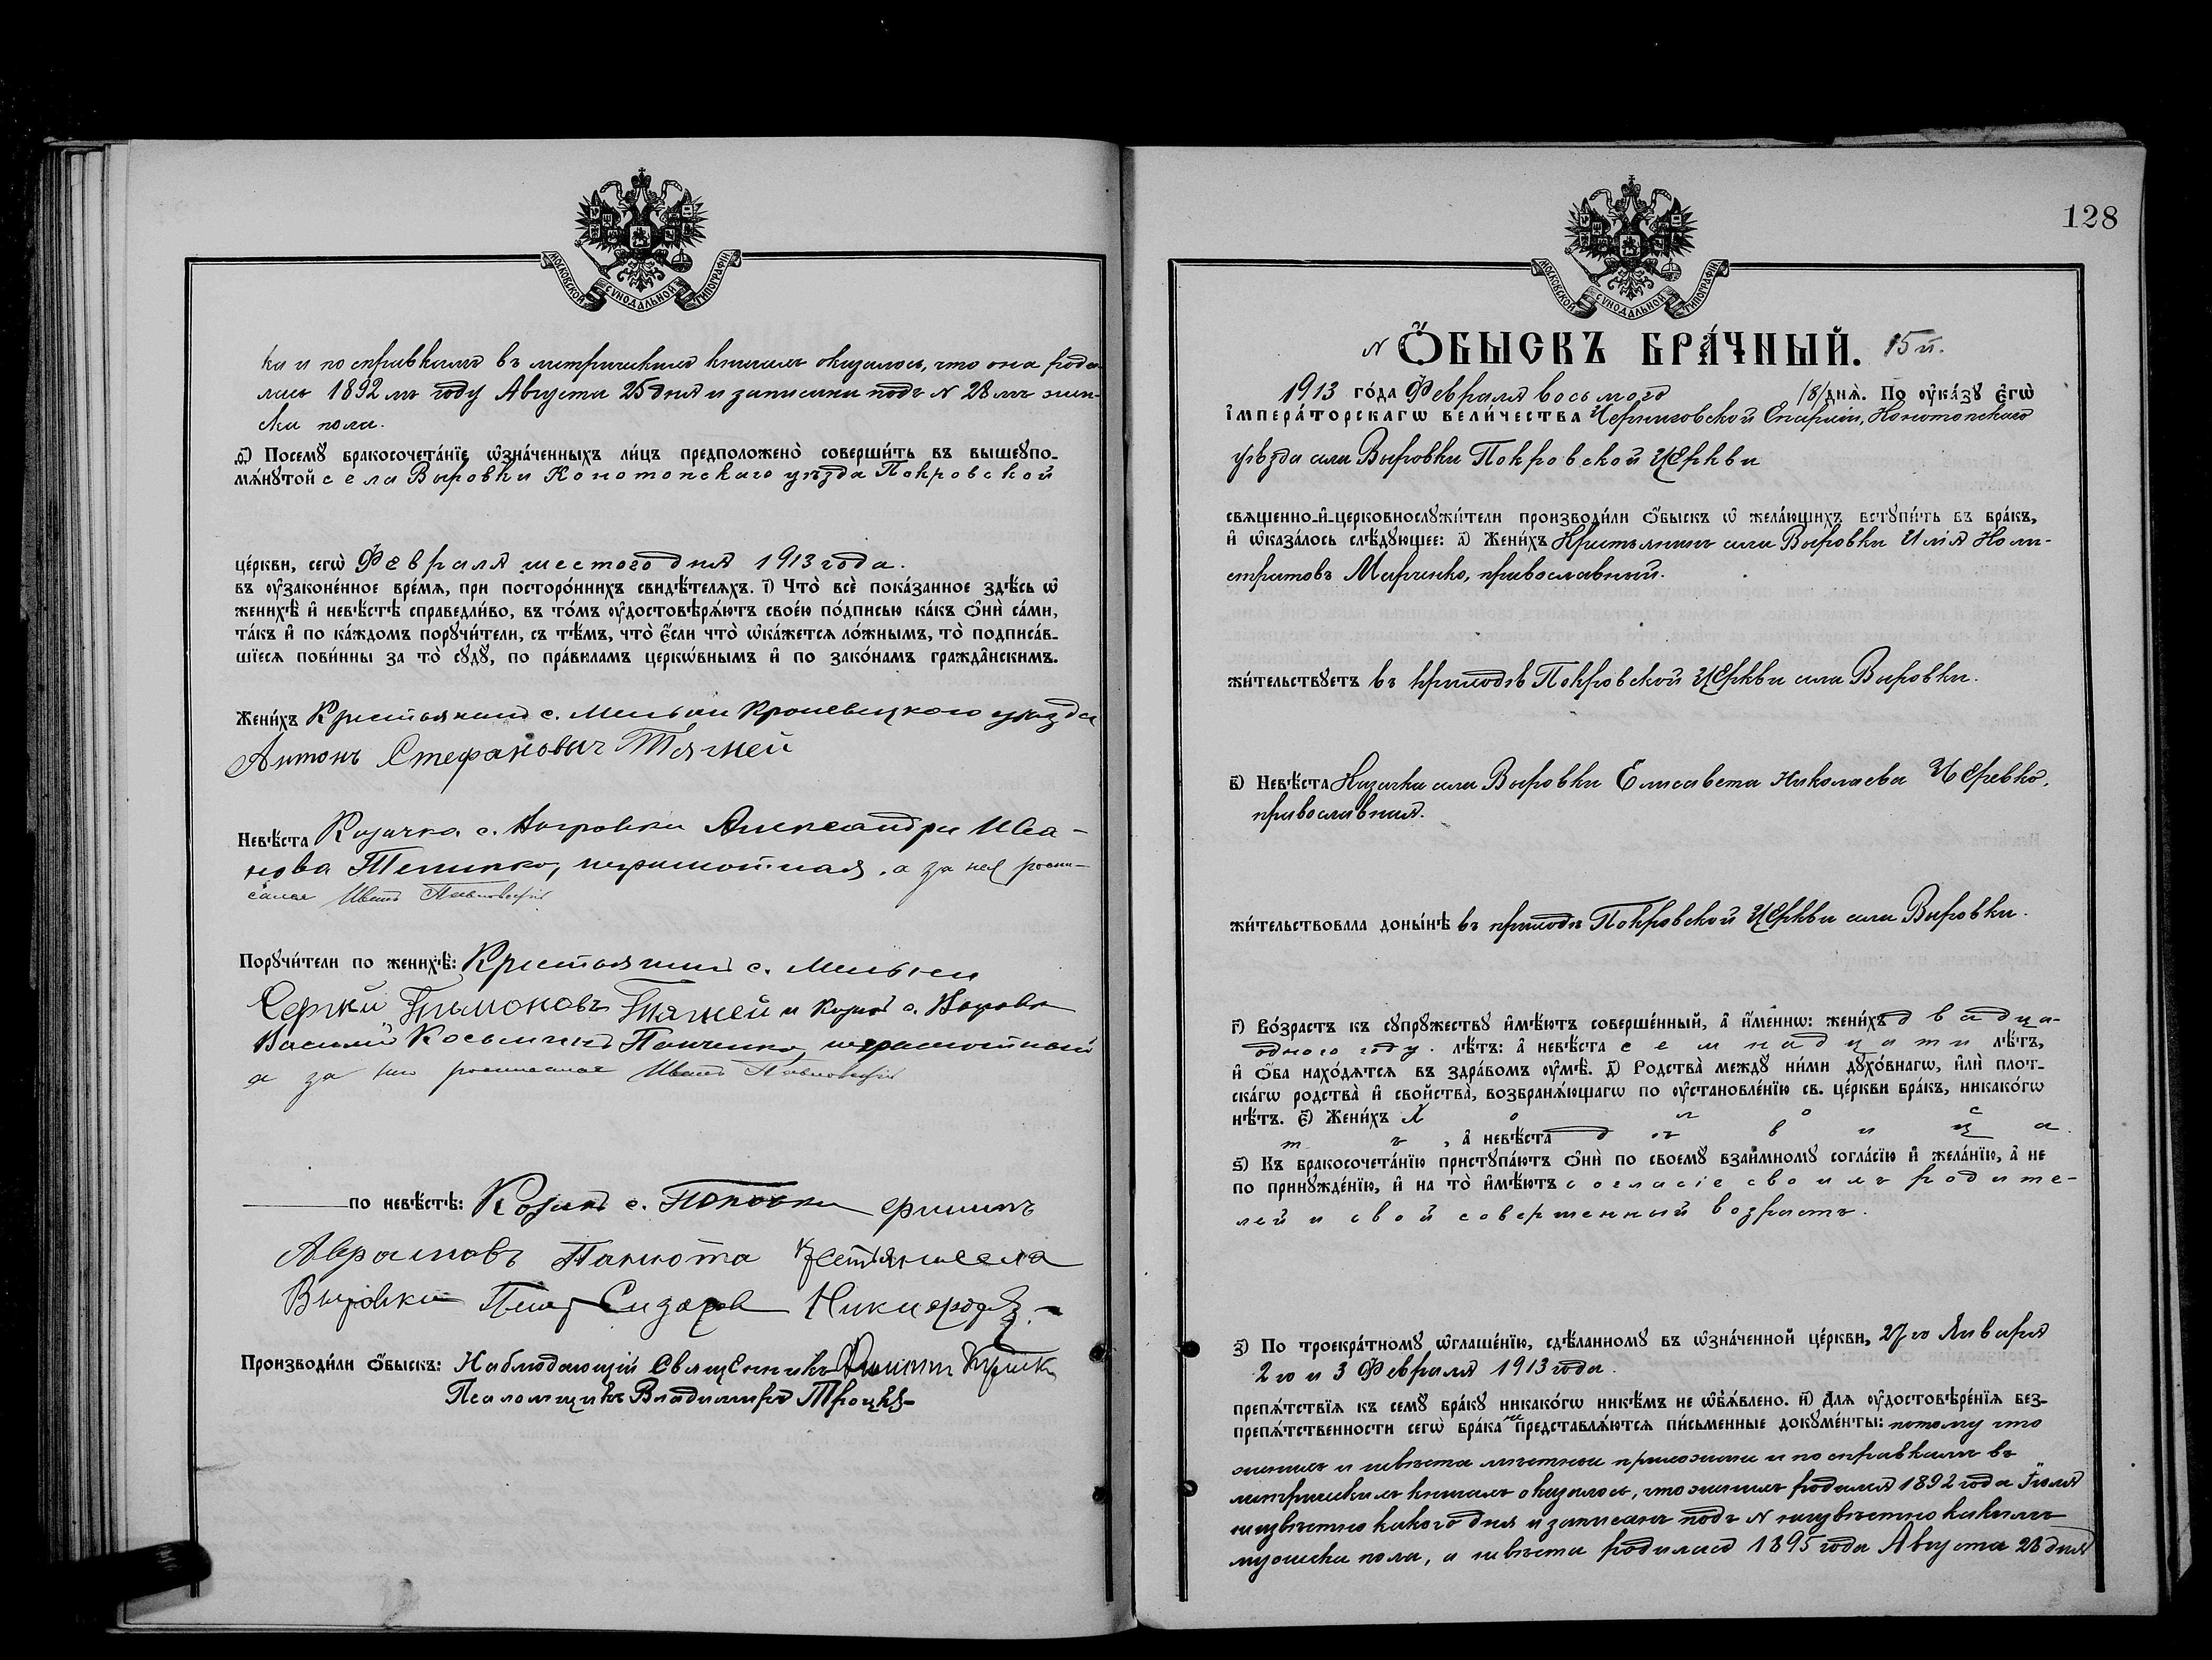 МОСКОВСКОЙ СУНОДАЛЬНОЙ ТИПОГРАФІИ
ки и по справкамъ въ метрическихъ книгахъ оказалось, что она роди-
лась 1892 мъ году Августа 25 дня и записана подъ N 28 мъ жен-
ска пола.
д҃) Посемꙋ бракосочета́нїе ѡ҆зна́ченныхъ ли́цъ предположено̀ соверши́ть въ вышеꙋпо-
мѧ́нꙋтой села Выровки Конотопскаго уѣзда Покровской
це́ркви, сегѡ̀ Февраля шестого дня 1913 года.
въ ᲂу҆зако́ненное вре́мѧ, при посторо́ннихъ свидѣ́телѧхъ. і҃) Что̀ всѐ пока́занное здѣ́сь ѡ҆
женихѣ̀ и҆ невѣ́стѣ справедли́во, въ то́мъ ᲂу҆достовѣрѧ́ютъ свое́ю по́дписью ка́къ ѻ҆нѝ са́ми,
та́къ и҆ по ка́ждомъ порꙋчи́тели, съ тѣ́мъ, что̀ є҆́сли что̀ ѡ҆ка́жетсѧ ло́жнымъ, то̀ подписа́в-
шїесѧ пови́нны за то̀ сꙋдꙋ̀, по пра́виламъ церкѡ́внымъ и҆ по зако́намъ гражда́нскимъ.
Жени́хъ Крестьянинъ с. Мельни Кролевецкого уѣзда
Антонъ Стефановичъ Тягней
Невѣ́ста Козачка с. Выровки Александра Ива-
нова неграмотная, а за нея роспи-
сался Иванъ
Порꙋчи́тели по женихѣ̀: Крестьянинъ с. Мельни
Сергій Тимоновъ Тягней и Козакъ с. Выровки
Василій Косьминъ Панченко, неграмотный
а за него росписался Иванъ
по невѣ́стѣ: Козакъ с. Филипъ
Аврамовъ Панкота села
Выровки Сидоровъ
Производи́ли ѻ҆́быскъ: Наблюдающій Священникъ
Псаломщикъ Владимиръ Троцкій
128
МОСКОВСКОЙ СУНОДАЛЬНОЙ ТИПОГРАФІИ
N Ѻ҆́БЫСКЪ БРА́ЧНЫЙ. 15 й.
1913 го́да Февраля восьмого /8/ днѧ̀. По ᲂу҆ка́зꙋ є҆гѡ̀
і҆мпера́торскагѡ вели́чества Черниговской Епархіи, Конотопскаго
уѣзда села Выровки Покровской Церкви
свѧщенно-и҆-церковнослꙋжи́тели производи́ли ѻ҆́быскъ ѡ҆ жела́ющихъ вступи́ть въ бра́къ,
и҆ ѡ҆каза́лось слѣ́дꙋющее: а҃) Жени́хъ Крестьянинъ села Выровки Илія Кали-
стратовъ Марченко, православный.
жи́тельствꙋетъ въ приходѣ Покровской Церкви села Выровки.
в҃) Невѣ́ста Козачка села Выровки Елисавета Николаева Черевко,
православная.
жи́тельствовала доны́нѣ въ приходѣ Покровской Церкви села Выровки.
г҃) Во́зрастъ къ сꙋпрꙋжествꙋ и҆мѣ́ютъ соверше́нный, а҆ и҆́меннѡ: жени́хъ двадца-
одного году. лѣ́тъ: а҆ невѣ́ста семнадцати лѣ́тъ,
и҆ ѻ҆́ба нахо́дѧтсѧ въ здра́вомъ ᲂу҆мѣ̀. д҃) Родства̀ междꙋ ни́ми дꙋхо́внагѡ, и҆лѝ плот-
ска́гѡ родства̀ и҆ сво́йства̀, возбранѧ́ющагѡ по ᲂу҆становле́нїю св. це́ркви бра́къ, никако́гѡ
нѣ́тъ. є҃) Жени́хъ холос
тъ, а҆ невѣ́ста дѣвица.
ѕ҃) Къ бракосочета́нїю пристꙋпа́ютъ ѻ҆нѝ по своемꙋ̀ взаи́мномꙋ согла́сїю и҆ жела́нїю, а҆ не
по принꙋжде́нїю, и҆ на то̀ и҆мѣ́ютъ согласіе своихъ родите-
лей и свой совершенный возрастъ.
з҃) По троекра́тномꙋ ѡ҆глаше́нїю, сдѣ́ланномꙋ въ ѡ҆зна́ченной це́ркви, 27 го Января
2 го и 3 Февраля 1913 года.
препѧ́тствїѧ къ семꙋ̀ бра́кꙋ никако́гѡ никѣ́мъ не ѡ҆б̾ѧ́влено. и҃) Длѧ ᲂу҆достовѣре́нїѧ без-
препѧ́тственности сегѡ̀ бра́ка не представлѧ́ютсѧ пи́сьменные докꙋме́нты: потому что
женихъ и невѣста мѣстные прихожане и по справкамъ въ
метрическихъ книгахъ оказалось, что женихъ родился 1892 года Іюля
неизвѣстно какого дня и записанъ подъ N неизвѣстно какимъ
мужска пола, а невѣста родилась 1895 года Августа 28 дня